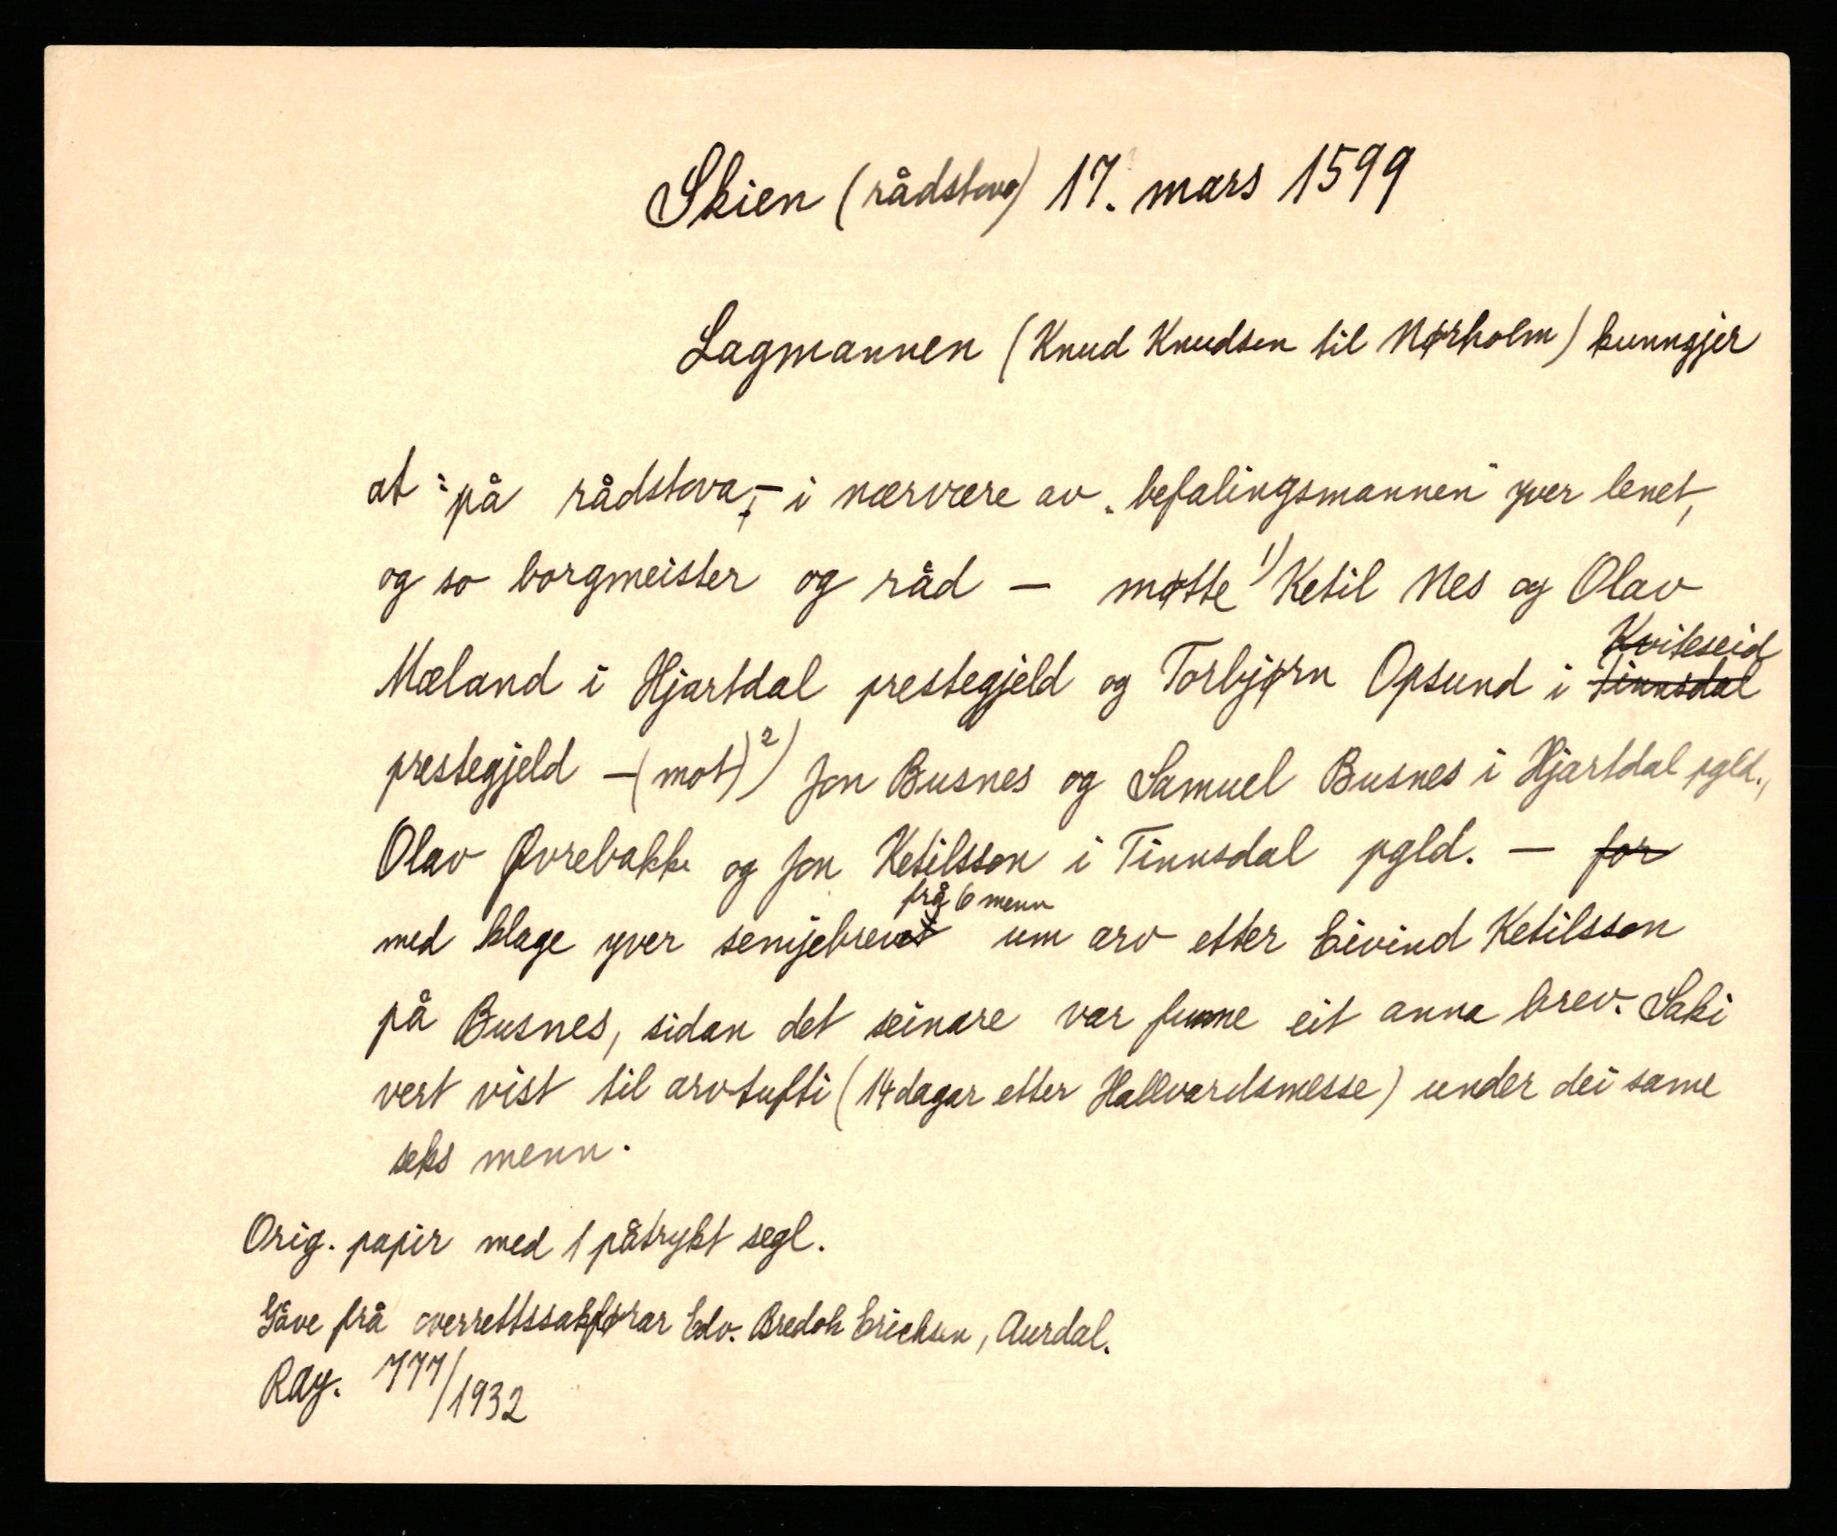 Skien (rådstova) 17. mars 1599
Lagmannen (Knud Knudsen til Nørholm) kunngjer
at : på rådstova, – i nærvære av „befalingsmannen“ yver lenet,
og so borgmeister og råd – møtte 1) Ketil Nes og Olav
Mæland i Hjartdal prestegjeld og Torbjørn Opsund i Tinnsdal Kviteseid
prestegjeld – (mot) 2) Jon Busnes og Samuel Busnes i Hjartdal pgld.,
Olav Øvrebakke og Jon Ketilsson i Tinnsdal pgld. – for
med klage yver semjebrevet frå 6 menn um arv etter Eivind Ketilsson
på Busnes, sidan det seinare var funne eit anna brev. Saki
vert vist til arvtufti (14 dagar etter Hallvardsmesse) under dei same
seks menn.
Orig. papir med 1 påtrykt segl.
Gåve frå overrettssakførar Edv. Bredoh Erichsen, Aurdal.
RAy. 777/1932